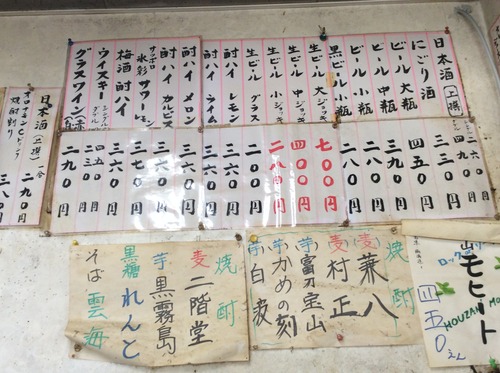 日本酒(上撰)
にごり酒
ビール 大瓶
ビール 中瓶
ビール 小瓶
黒ビール 小瓶
生ビール 大ジョッキ
生ビール 中ジョッキ
生ビール 小ジョッキ
生ビール グラス
酎ハイ レモン
酎ハイ ライム
酎ハイ メロン
酎ハイ カルピス
サッポロ 氷彩サワー
梅酒 酎ハイ
ウイスキー シングル
グラスワイン(赤
二九〇円
三三〇円
四五〇円
三九〇円
二八〇円
二八〇円
七〇〇円
四〇〇円
二八〇円
三六〇円
三六〇円
三六〇円
三六〇円
三七〇円
三六〇円
四五〇円
二三〇円
二九〇円
日本酒(上撰)一合
二九〇円
焼酎割り
焼酎
(麦)兼八
麦 村正
芋 富乃宝山
(芋)かめの刻
(芋)白波
焼酎
麦 二階堂
芋 黒霧島
黒糖 れんと
そば 雲海
モヒート
四五〇えん
HOUZAN